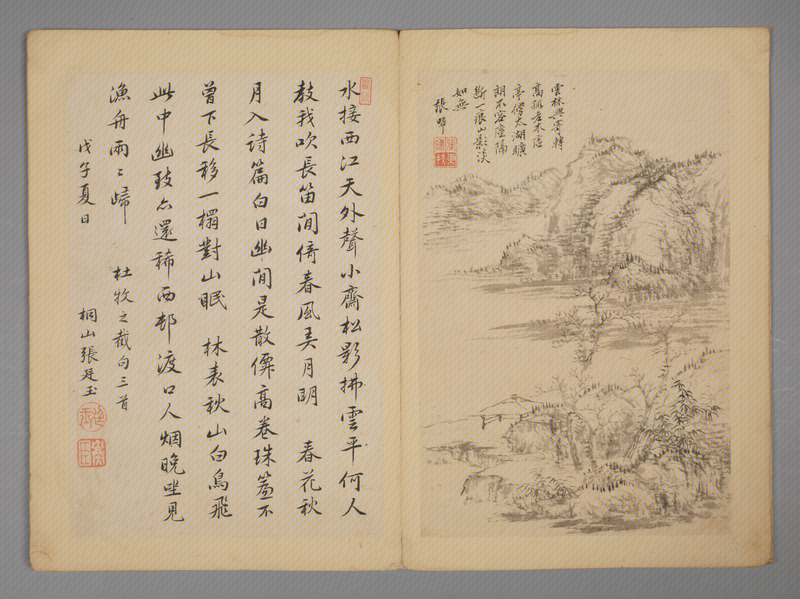 雲林興寄轉
高孤老木居
亭傍太湖曠
朗不容塵隔
斷一痕山影淡
如無
張
水接西江天外聲小齋松影拂雲平何人
教我吹長笛閒倚春風弄月明 春花秋
月入詩篇白日幽閒是散僊高卷珠簾不
曾下長移一榻對山眠 林表秋山白鳥飛
此中幽致亦還稀西邨渡口人烟晚坐見
漁舟兩〻歸 杜牧之截句三首
戊午夏日
桐山張廷玉